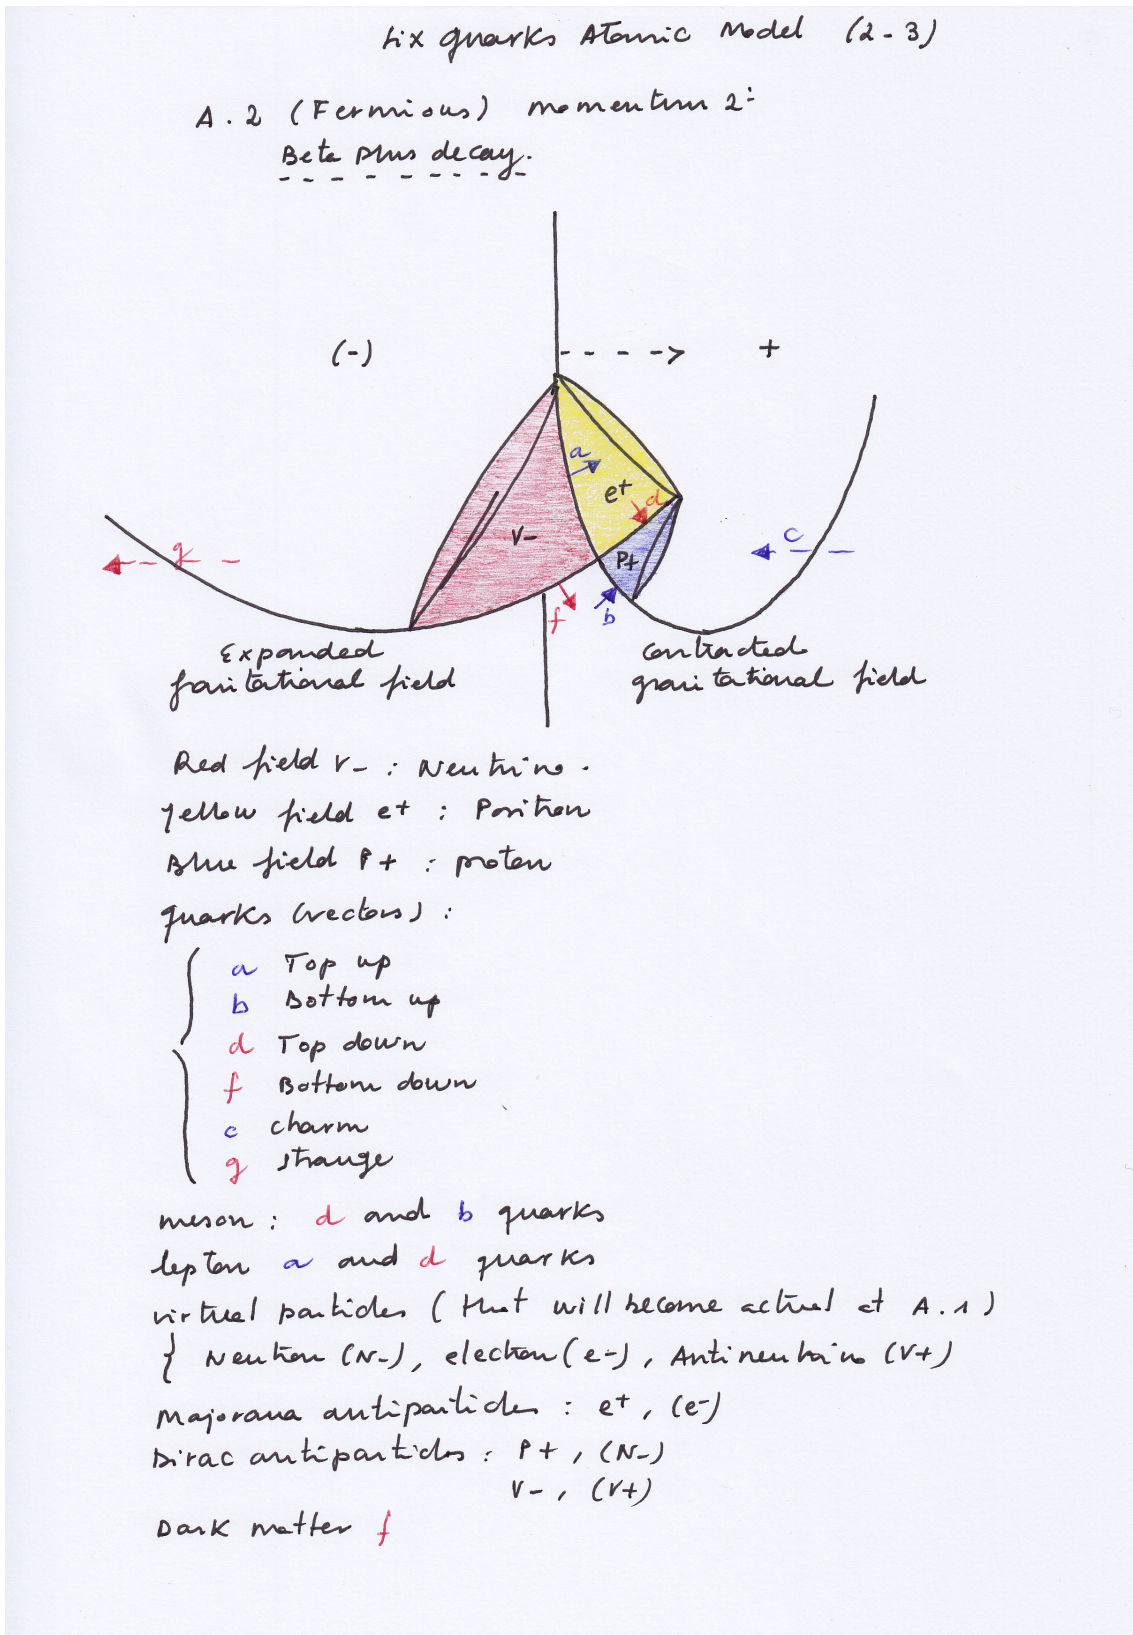 Six quarks Atomic Model (2-3)
A.2 (Fermions) momentum 2:
Beta plus decay.
(-) +
a
e+
d
V-
P+
c
g
f
b
Expanded
gravitational field
contracted
gravitational field
Red field V- : Neutrino.
Yellow field e+ : Positron
Blue field P+ : proton
quarks (vectors) :
a Top up
b Bottom up
d Top down
f Bottom down
c charm
g strange
meson : d and b quarks
lepton a and d quarks
virtual particles (that will become actual at A.1)
Neutron (N-), electron (e-), Antineutrino (V+)
Majorana antiparticles : e+, (e-)
Dirac antiparticles : P+, (N-)
V-, (V+)
Dark matter f